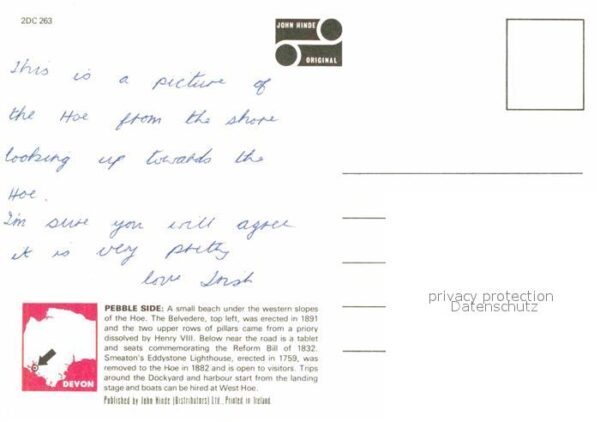 2DC 263
JOHN HINDE
ORIGINAL
This is a picture of
the Hoe from the shore
looking up towards the
Hoe.
I'm sure you will agree
it is very pretty
love
privacy protection
Datenschutz
PEBBLE SIDE: A small beach under the western slopes
of the Hoe. The Belvedere, top left, was erected in 1891
and the two upper rows of pillars came from a priory
dissolved by Henry VIII. Below near the road is a tablet
and seats commemorating the Reform Bill of 1832.
Smeaton's Eddystone Lighthouse, erected in 1759, was
removed to the Hoe in 1882 and is open to visitors. Trips
around the Dockyard and harbour start from the landing
stage and boats can be hired at West Hoe.
DEVON
Published by John Hinde (Distributors) Ltd., Printed in Ireland.